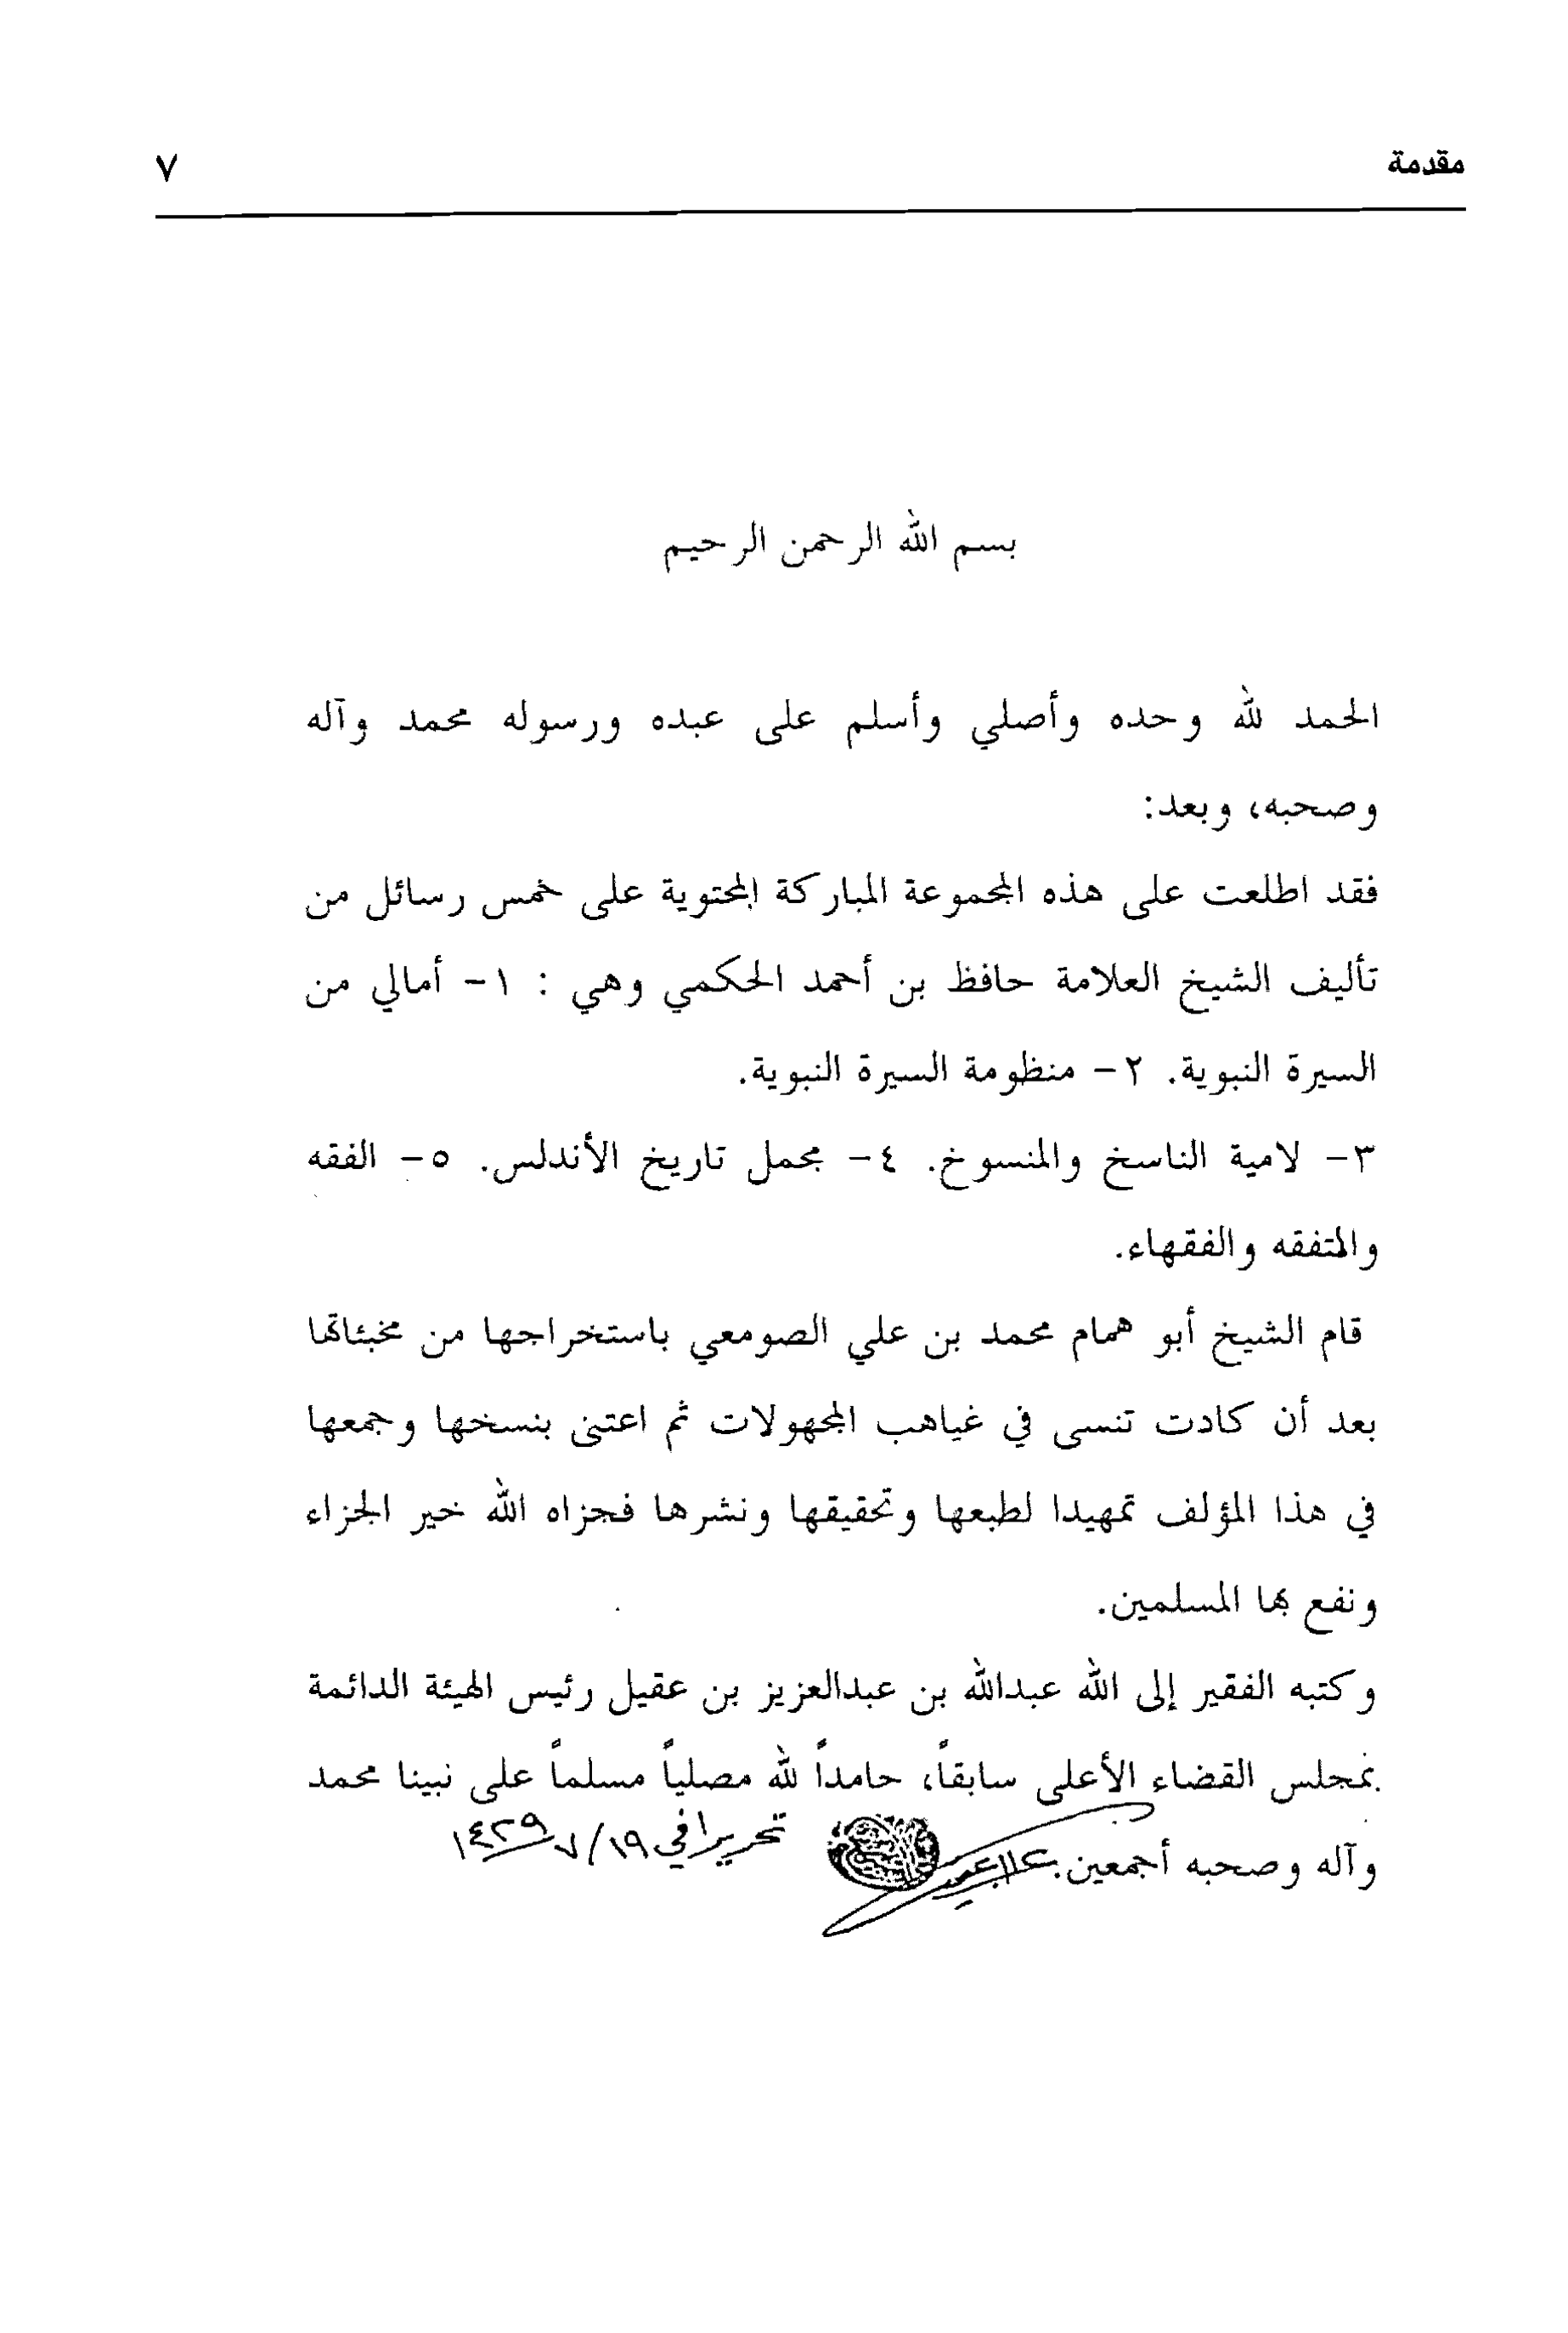 مقدمة ٧
بسم الله الرحمن الرحيم
الحمد لله وحده وأصلي وأسلم على عبده ورسوله محمد وآله
وصحبه، وبعد:
فقد اطلعت على هذه المجموعة المباركة المحتوية على خمس رسائل من
تأليف الشيخ العلامة حافظ بن أحمد الحكمي وهي : ١- أمالي من
السيرة النبوية. ٢- منظومة السيرة النبوية.
٣- لامية الناسخ والمنسوخ. ٤- مجمل تاريخ الأندلس. ٥- الفقه
والمتفقه والفقهاء.
قام الشيخ أبو همام محمد بن علي الصومعي باستخراجها من مخبئاتها
بعد أن كادت تنسى في غياهب المجهولات ثم اعتنى بنسخها وجمعها
في هذا المؤلف تمهيدا لطبعها وتحقيقها ونشرها فجزاه الله خير الجزاء
ونفع بها المسلمين.
وكتبه الفقير إلى الله عبدالله بن عبدالعزيز بن عقيل رئيس الهيئة الدائمة
بمجلس القضاء الأعلى سابقاً، حامداً لله مصلياً مسلماً على نبينا محمد
وآله وصحبه أجمعين. تحريرا في ١٩/ ٧ ١٤٢٩